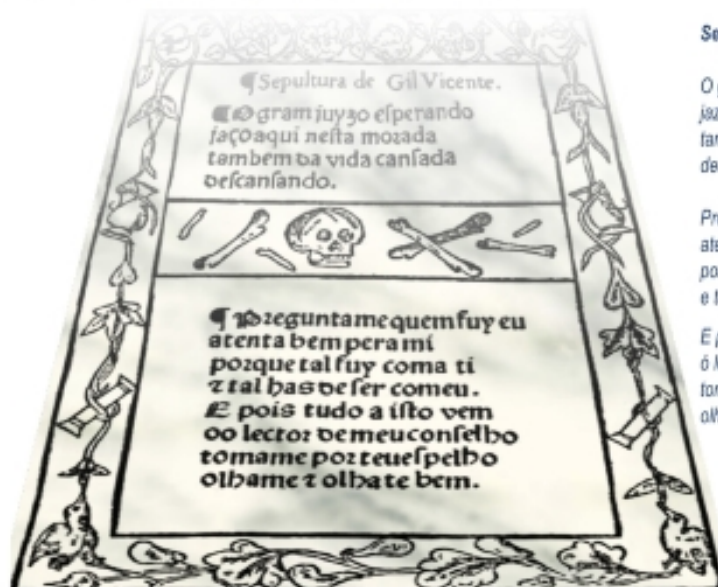 ¶ Sepultura de Gil Vicente.
¶ O gram juyzo esperando
jaço aqui nesta morada
tambem da vida cansada
descansando.
¶ Preguntame quem fuy eu
atenta bem pera mi
porque tal fuy coma ti
⁊ tal has de ser com eu.
E pois tudo a isto vem
oo lector de meu conselho
tomame por teu espelho
olhame ⁊ olhate bem.
Se
O
jaz
de
ate
po
e t
E
ó